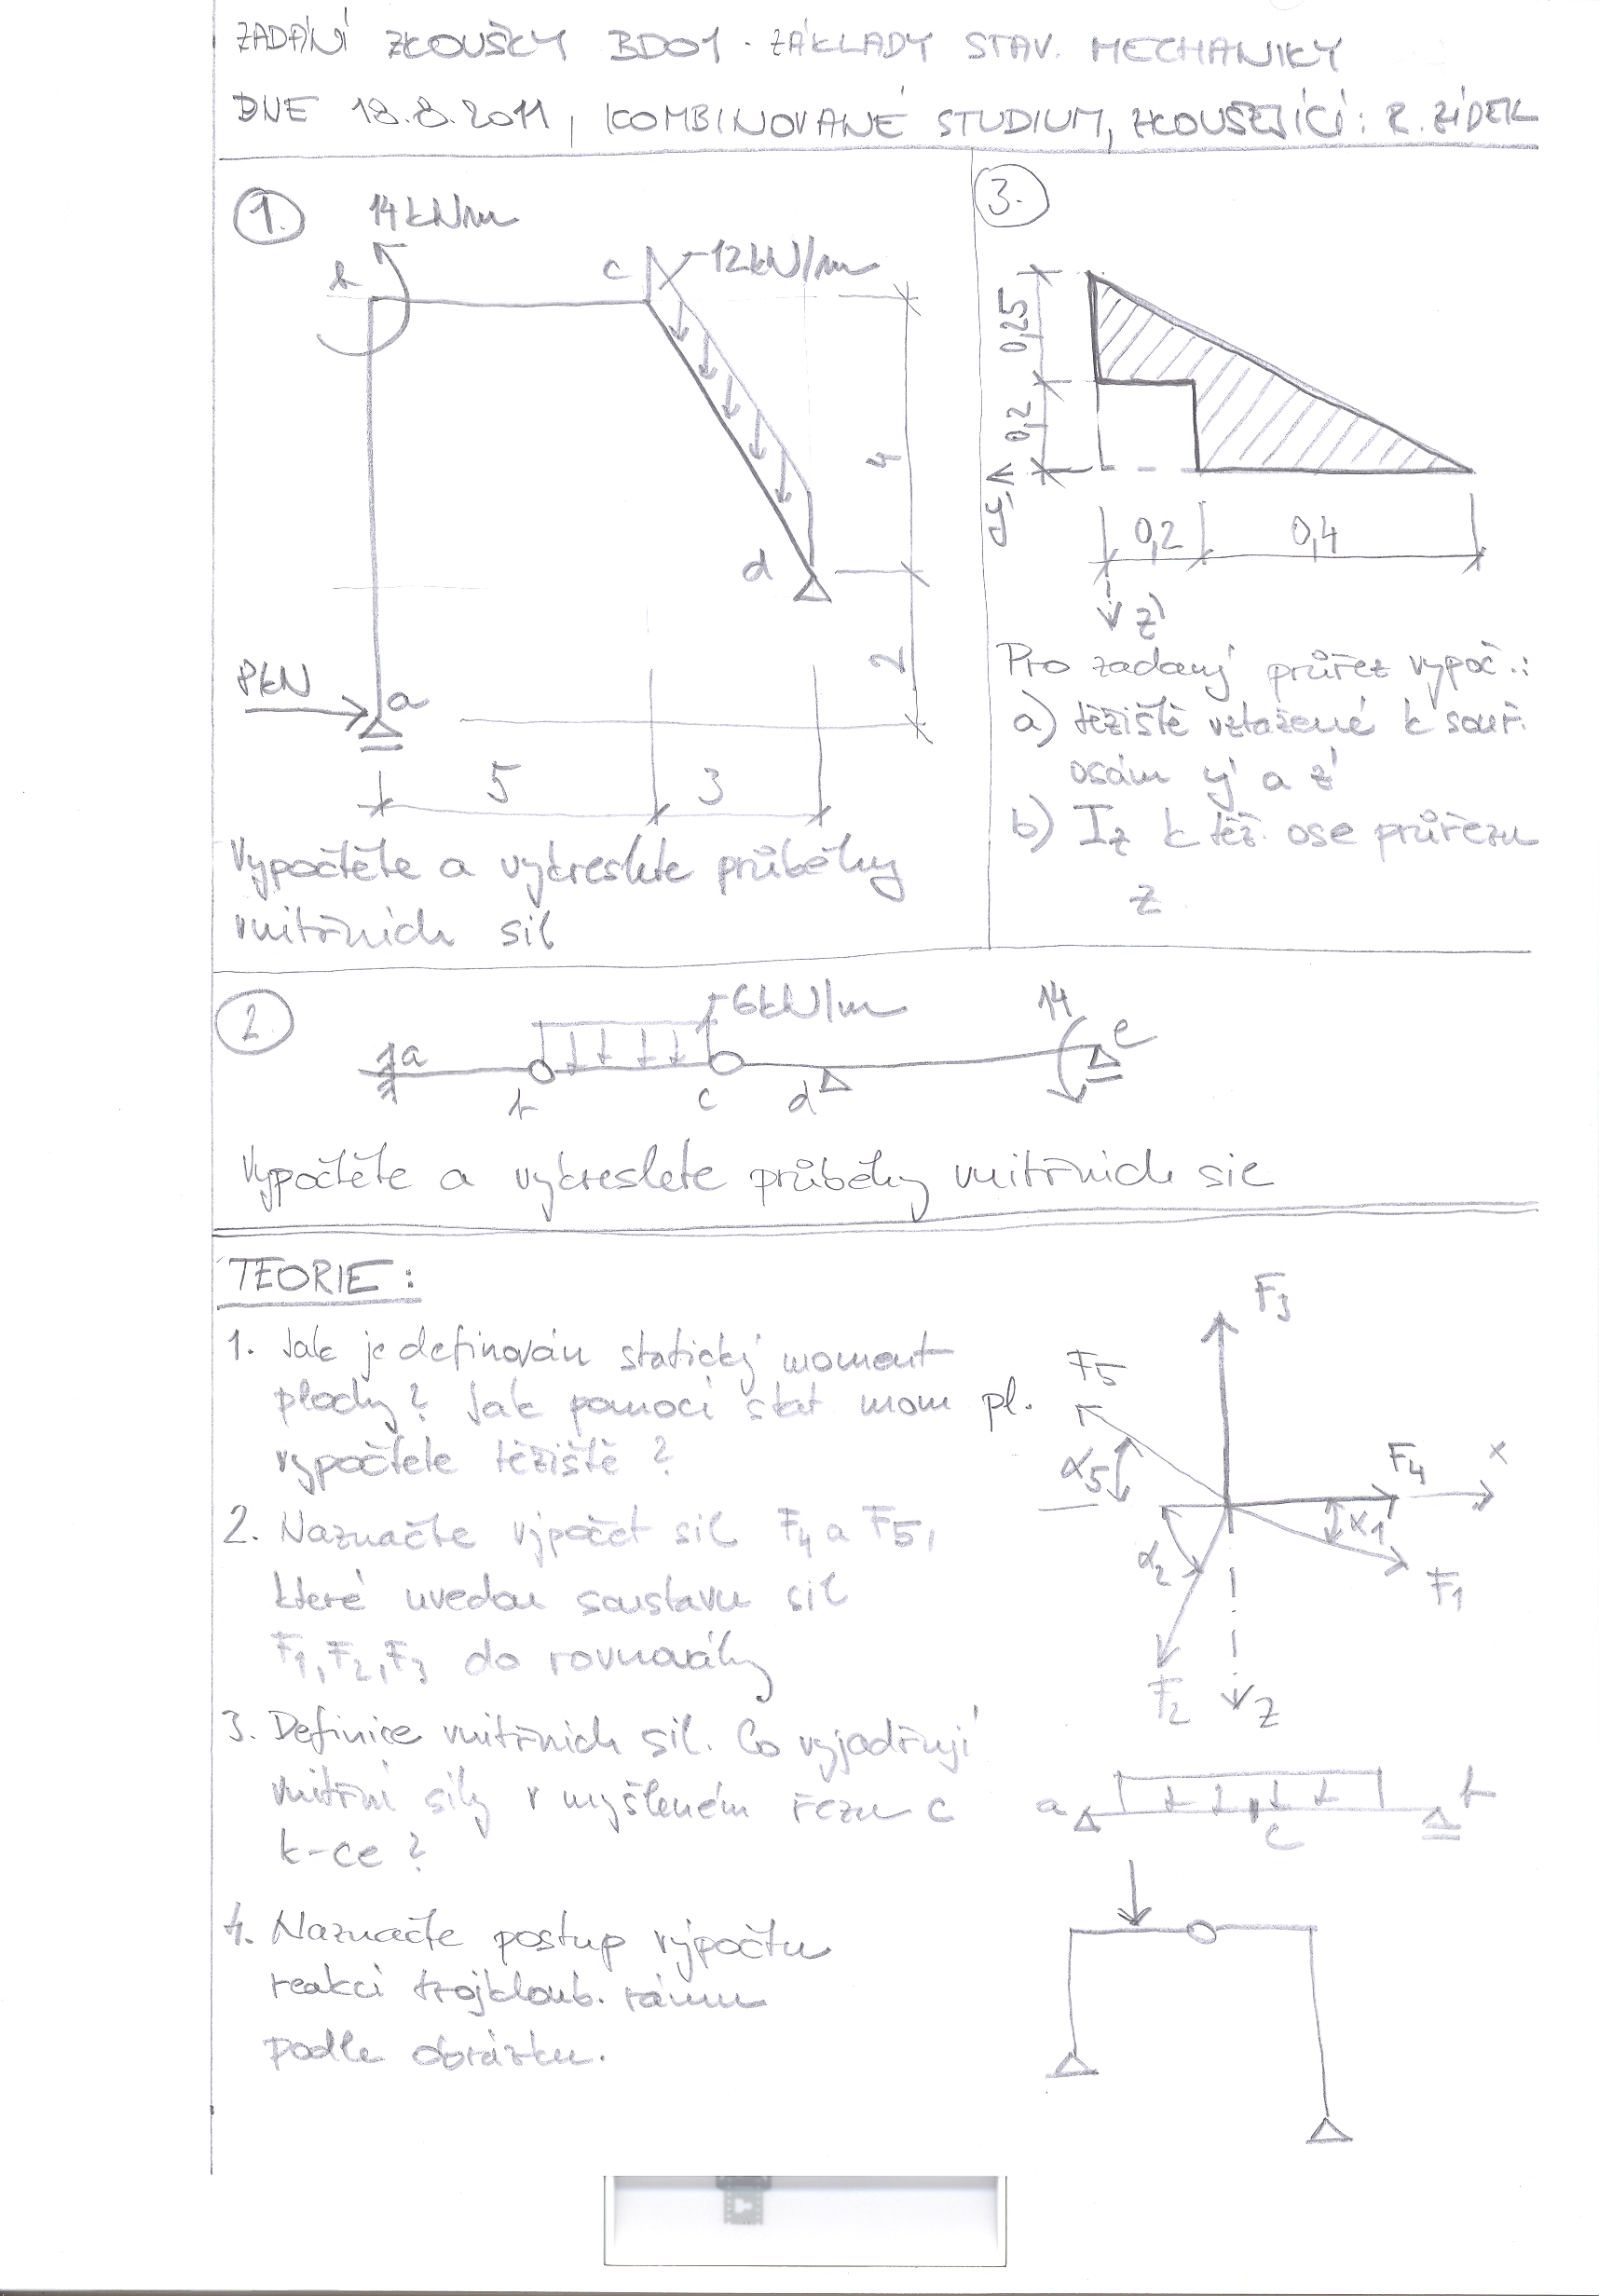 ZADÁNÍ ZKOUŠKY BD01 - ZÁKLADY STAV. MECHANIKY
DNE 18.8.2011, KOMBINOVANÉ STUDIUM, ZKOUŠEJÍCÍ: R. ZÍDEK
1.
14 kNm
b
c
12 kN/m
4
d
2
8 kN
a
5
3
Vypočtěte a vykreslete průběhy
vnitřních sil
3.
0,25
0,2
y'
0,2
0,4
z'
Pro zadaný průřez vypoč.:
a) těžiště vztažené k souř.
osám y' a z'
b) Iz k těž. ose průřezu
z
2
a
b
6 kN/m
c
d
14
e
Vypočtěte a vykreslete průběhy vnitřních sil
TEORIE:
1. Jak je definován statický moment
plochy? Jak pomocí stat mom pl.
vypočtete těžiště?
2. Naznačte výpočet sil F4 a F5,
které uvedou soustavu sil
F1, F2, F3 do rovnováhy
3. Definice vnitřních sil. Co vyjadřují
vnitřní síly v myšleném řezu c
k-ce?
4. Naznačte postup výpočtu
reakcí trojkloub. rámu
podle obrázku.
F3
F5
α5
F4
x
α1
α2
F1
F2
z
a
c
b